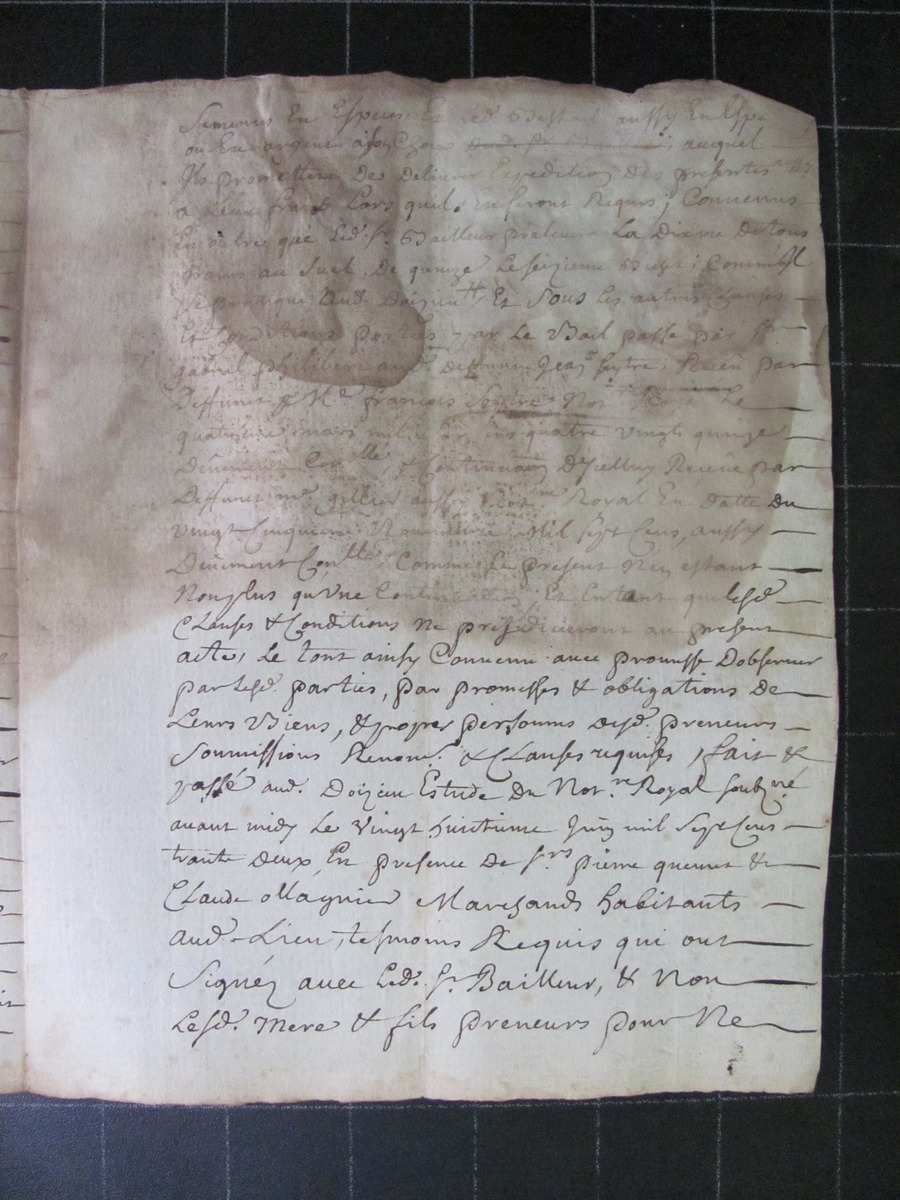 Semences En Especes, Et led. Bestail aussy En Espe
ou En argent a son Choix auquel
Ils promettent De delivrer Expedition des presentes
a Leurs frais Lors quils En seront Requis, Convenus
En outre que Led. Sr. Bailleur prelevera La Dixme de tous
grains au Sueil, De quinze Le seizieme
Se pratique aud. Doizieu, Et Sous les autres Clauses
Et Conditions portées par Le Bail passé par Sr
gabriel philibert aud. deffunt Jean Seytre, Receu par
Deffunct Me. françois Seytre Notre Le
quatorze mars mil six cens quatre vingts quinze
Deuement Conllé, & Continuaon D'Icelluy Receue par
Deffunt me. aussy Notre Royal En datte du
vingt Cinquieme Novembre Mil Sept Cens, aussy
Deuement Conllé, Comme Le present N'en estant
Non plus qu'une Continuation, Et Entant que lesd.
Clauses & Conditions Ne prejudicieront au present
acte, Le tout ainsy Convenu avec promesse D'observer
par Lesd. parties, par promesses & obligations De
Leurs Biens, & propres personnes desd. preneurs
Soumissions Renons. & Clauses requises, fait &
passé aud. Doizieu Estude Du Notre. Royal soubzné
avant midy Le vingt huitieme Juin mil Sept Cens
trante deux En presence De Srs pierre &
Claude Magnier Marchands habitants
aud. Lieu, tesmoins Requis qui ont
Signéz avec Led. Sr. Bailleur, & Non
Lesd. Mere & fils preneurs pour Ne